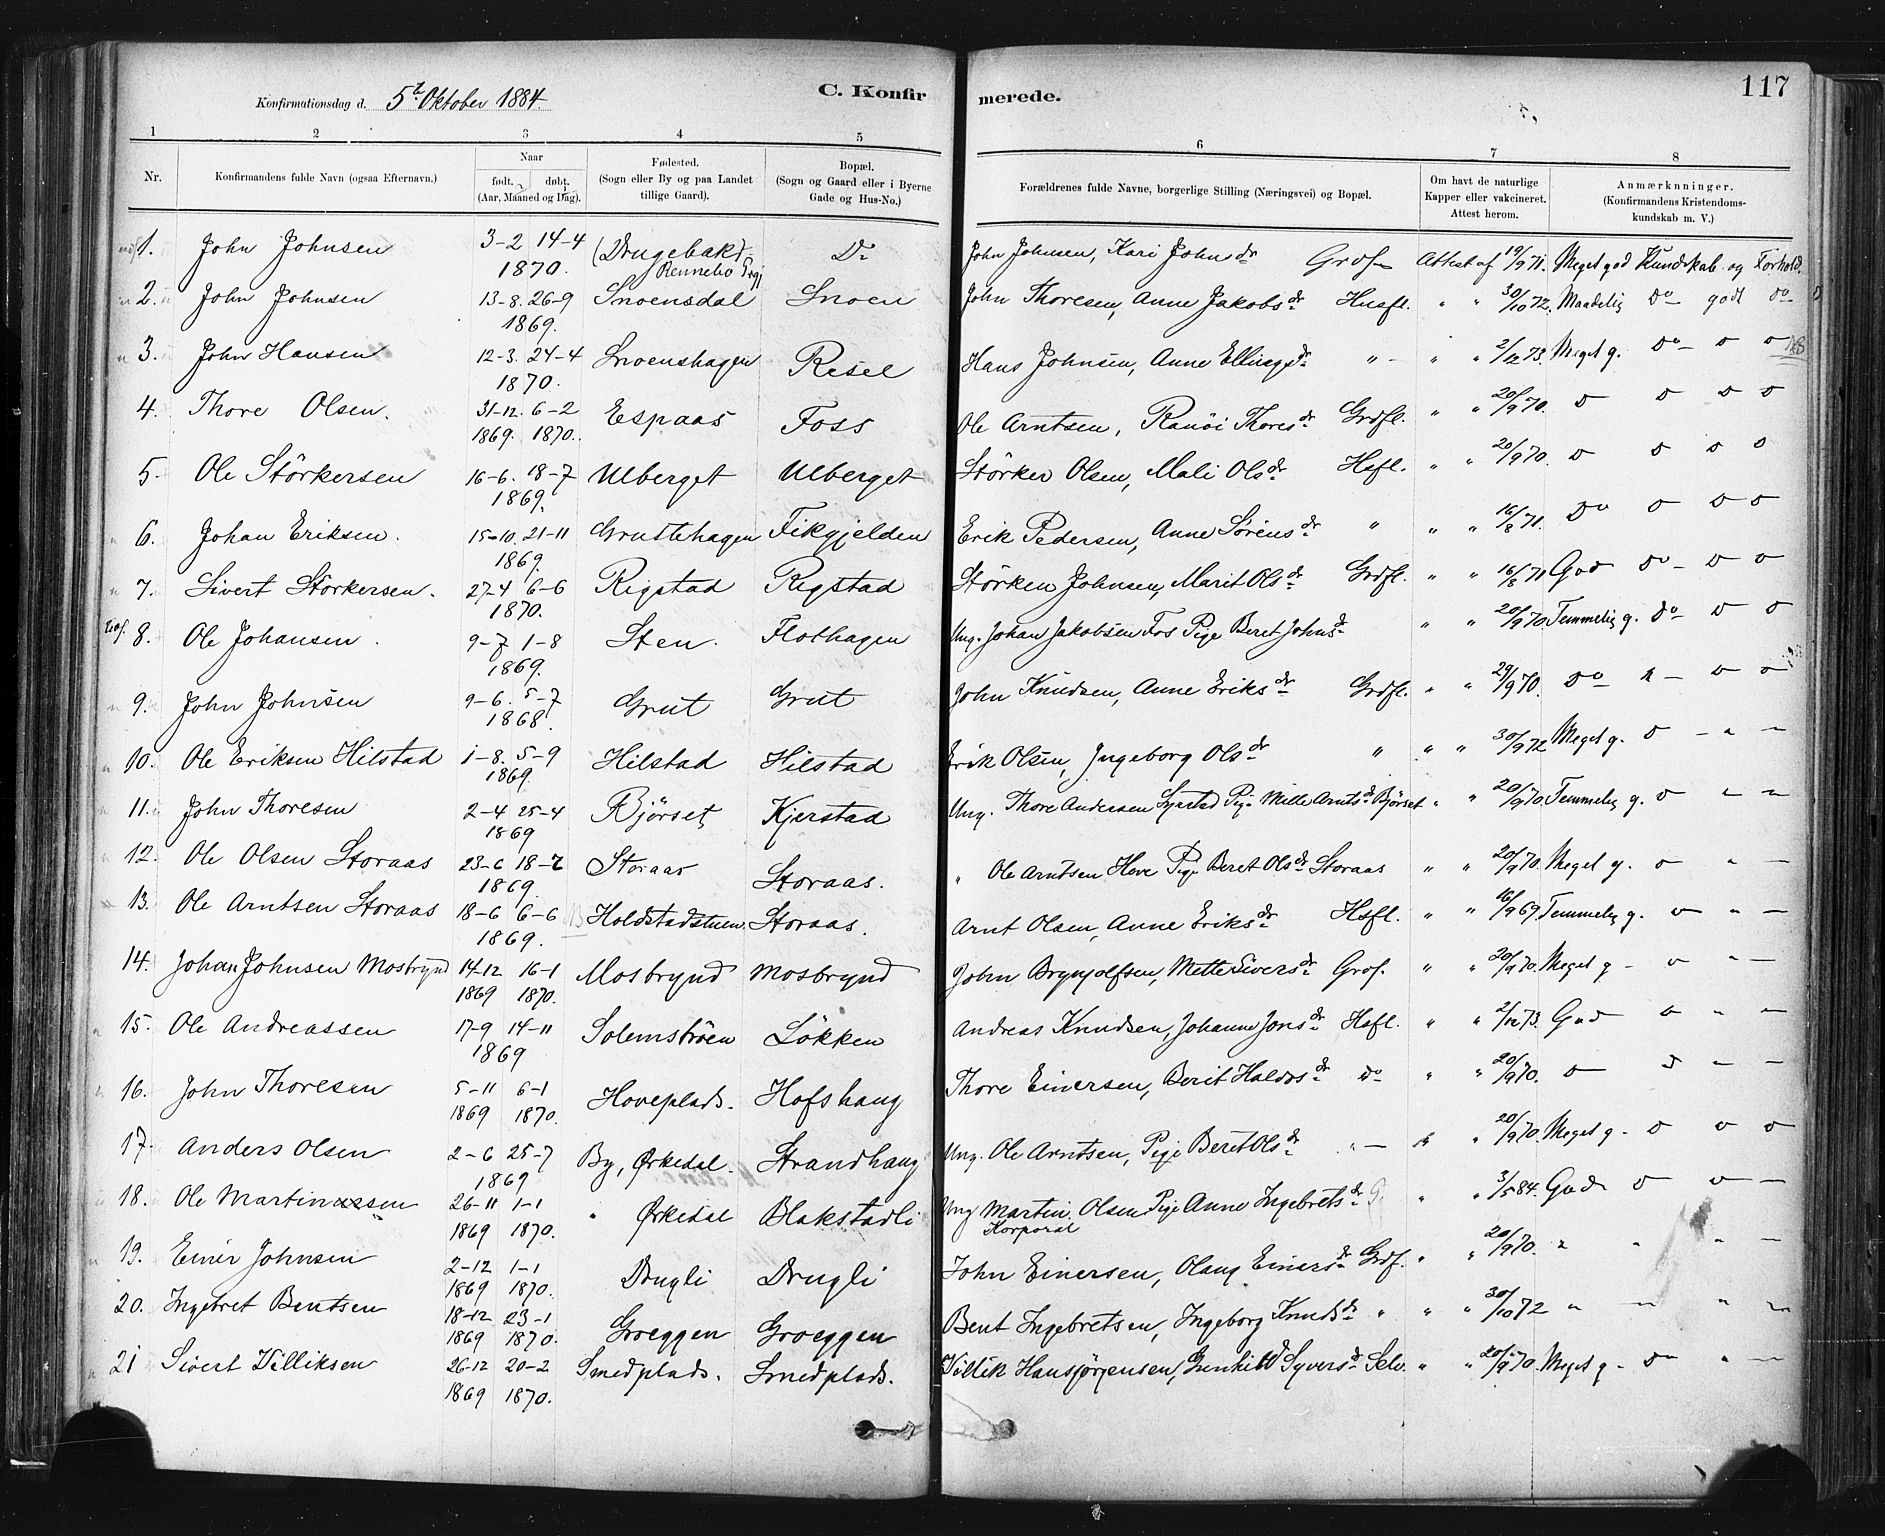 117
Konfirmationsdag d. 5te Oktober 1884.
C. Konfirmerede.
1 2 3 4 5 6 7 8
Nr. Konfirmandens fulde Navn (ogsaa Efternavn.) Naar født. døbt. (Aar, Maaned og Dag). Fødested. (Sogn eller By og paa Landet tillige Gaard). Bopæl. (Sogn og Gaard eller i Byerne Gade og Hus-No.) Forældrenes fulde Navne, borgerlige Stilling (Næringsvei) og Bopæl. Om havt de naturlige Kapper eller vakcineret. Attest herom. Anmærknninger. (Konfirmandens Kristendomskundskab m. V.)
1. John Johnsen 3-2 14-4 1870. (Drugebak) Rennebo Do John Johnsen, Kari Johnsdr Attest af 19/9 71. Meget god Kundskab og Forhold.
2. John Johnsen 13-8. 26-9 1869. Snoensdal Snoen John Thoresen, Anne Jakobsdr Husfl. " " 30/10 72. Maadelig Do godt Do
3. John Hansen 12-3. 24-4 1870. Snoenshagen Resel Hans Johnsen, Anne Ellingsdr " " " 2/12 73. Meget g. Do
4. Thore Olsen. 31-12. 6-2 1869. 1870. Espaas Foss Ole Arntsen, Ranöi Thoresdr Grdfl. " " 20/9 70.
5. Ole Störkersen 16-6. 18-7 1869. Ulberget Ulberget Störker Olsen, Mali Olsdr Hsfl. " " 20/9 70.
6. Johan Eriksen. 15-10. 21-11 1869. Gruttehagen Fikgjelden Erik Pedersen, Anne Sörensdr " " " 16/8 71. Do
7. Sivert Störkersen. 27-4 6-6 1870. Rigstad Rigstad Störken Johnsen, Marit Olsdr Grdfl. " " 16/8 71 God Do
8. Ole Johansen. 9-7 1-8 1869. Sten. Flothagen Ung. Johan Jakobsen Fos Pige Beret Johnsdr " " 20/9 70 Temmelig g. Do
9. John Johnsen 9-6. 5-7 1868. Grut Grut John Knudsen, Anne Eriksdr Grdfl. " " 29/9 70. Do
10. Ole Eriksen Hilstad 1-8. 5-9 1869. Hilstad Hilstad Erik Olsen, Ingeborg Olsdr " " " 30/9 72 Meget g.
11. John Thoresen 2-4 25-4 1869 Bjørset Kjerstad Ung. Thore Andersen Pige Mille Arntsdr Bjørset " " 20/9 70. Temmelig g.
12. Ole Olsen Storaas 23-6 18-7 1869. Storaas Storaas. " Ole Arntsen Hove Pige Beret Olsdr Storaas " " 20/9 70. Meget g.
13. Ole Arntsen Storaas 18-6 6-6 1869. Holdstadstuen Storaas. Arnt Olsen, Anne Eriksdr Hsfl. " " 16/9 69. Temmelig g.
14. Johan Johnsen Mosbrynd 14-12 16-1 1869 1870. Mosbrynd Mosbrynd John Brynjolfsen, Mette Siversdr " " 20/9 70. Meget g
15. Ole Andreassen 17-9 14-11 1869 Solemströen Lökken Andreas Knudsen, Johanne Jonsdr Hsfl. " " 2/12 73. God
16. John Thoresen 5-11 6-1 1869 1870. Hoveplads. Hofshaug Thore Einersen, Berit Haldosdr Do " " 20/9 70.
17. Anders Olsen 2-6 25-7 1869 By, Ørkedal. Strandhaug Ung. Ole Arntsen, Pige Beret Olsdr " 20/9 70. Meget g
18. Ole Martinussen 26-11 1-1 1869 1870. " Ørkedal Blakstadli Ung Martin Olsen Pige Anne Ingebretsdr " " 3/5 84. God
Korporal
19. Einer Johnsen 2-12 1-1 1869 1870. Drugli Drugli John Einersen, Olaug Einersdr Grdf. " " 20/9 70.
20. Ingebret Bentsen 18-12 23-1 1869 1870. Groeggen Groeggen Bent Ingebretsen, Ingeborg Knudsdr " " " 30/10 72 "
21 Sivert Villiksen 26-12 20-2 1869 1870. Smedplads. Smedplads. Villik Hansjörgensen, Gunhild Syversdr Selv. " " 20/9 70. Meget g. Do